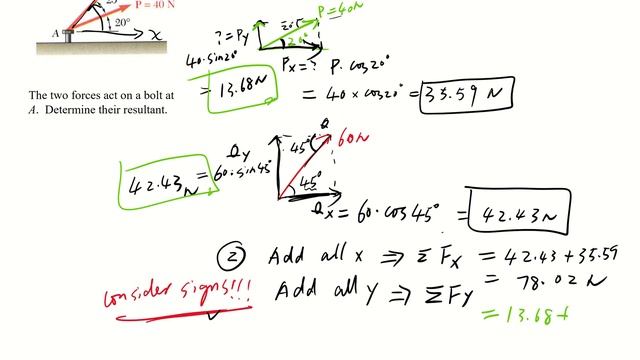 25°
P = 40 N
20°
A
x
? = Py
P=40N
20°
20°
40·sin20°
= 13.68 N
Px = ? P·cos20°
= 40 × cos20° = 35.59 N
The two forces act on a bolt at
A. Determine their resultant.
Q
60N
45°
45°
Qy
42.43 N = 60·sin45°
Qx = 60·cos45° = 42.43N
② Add all x ⇒ ΣFx = 42.43 + 35.59
= 78.02 N
consider signs!!! Add all y ⇒ ΣFy
= 13.68 +